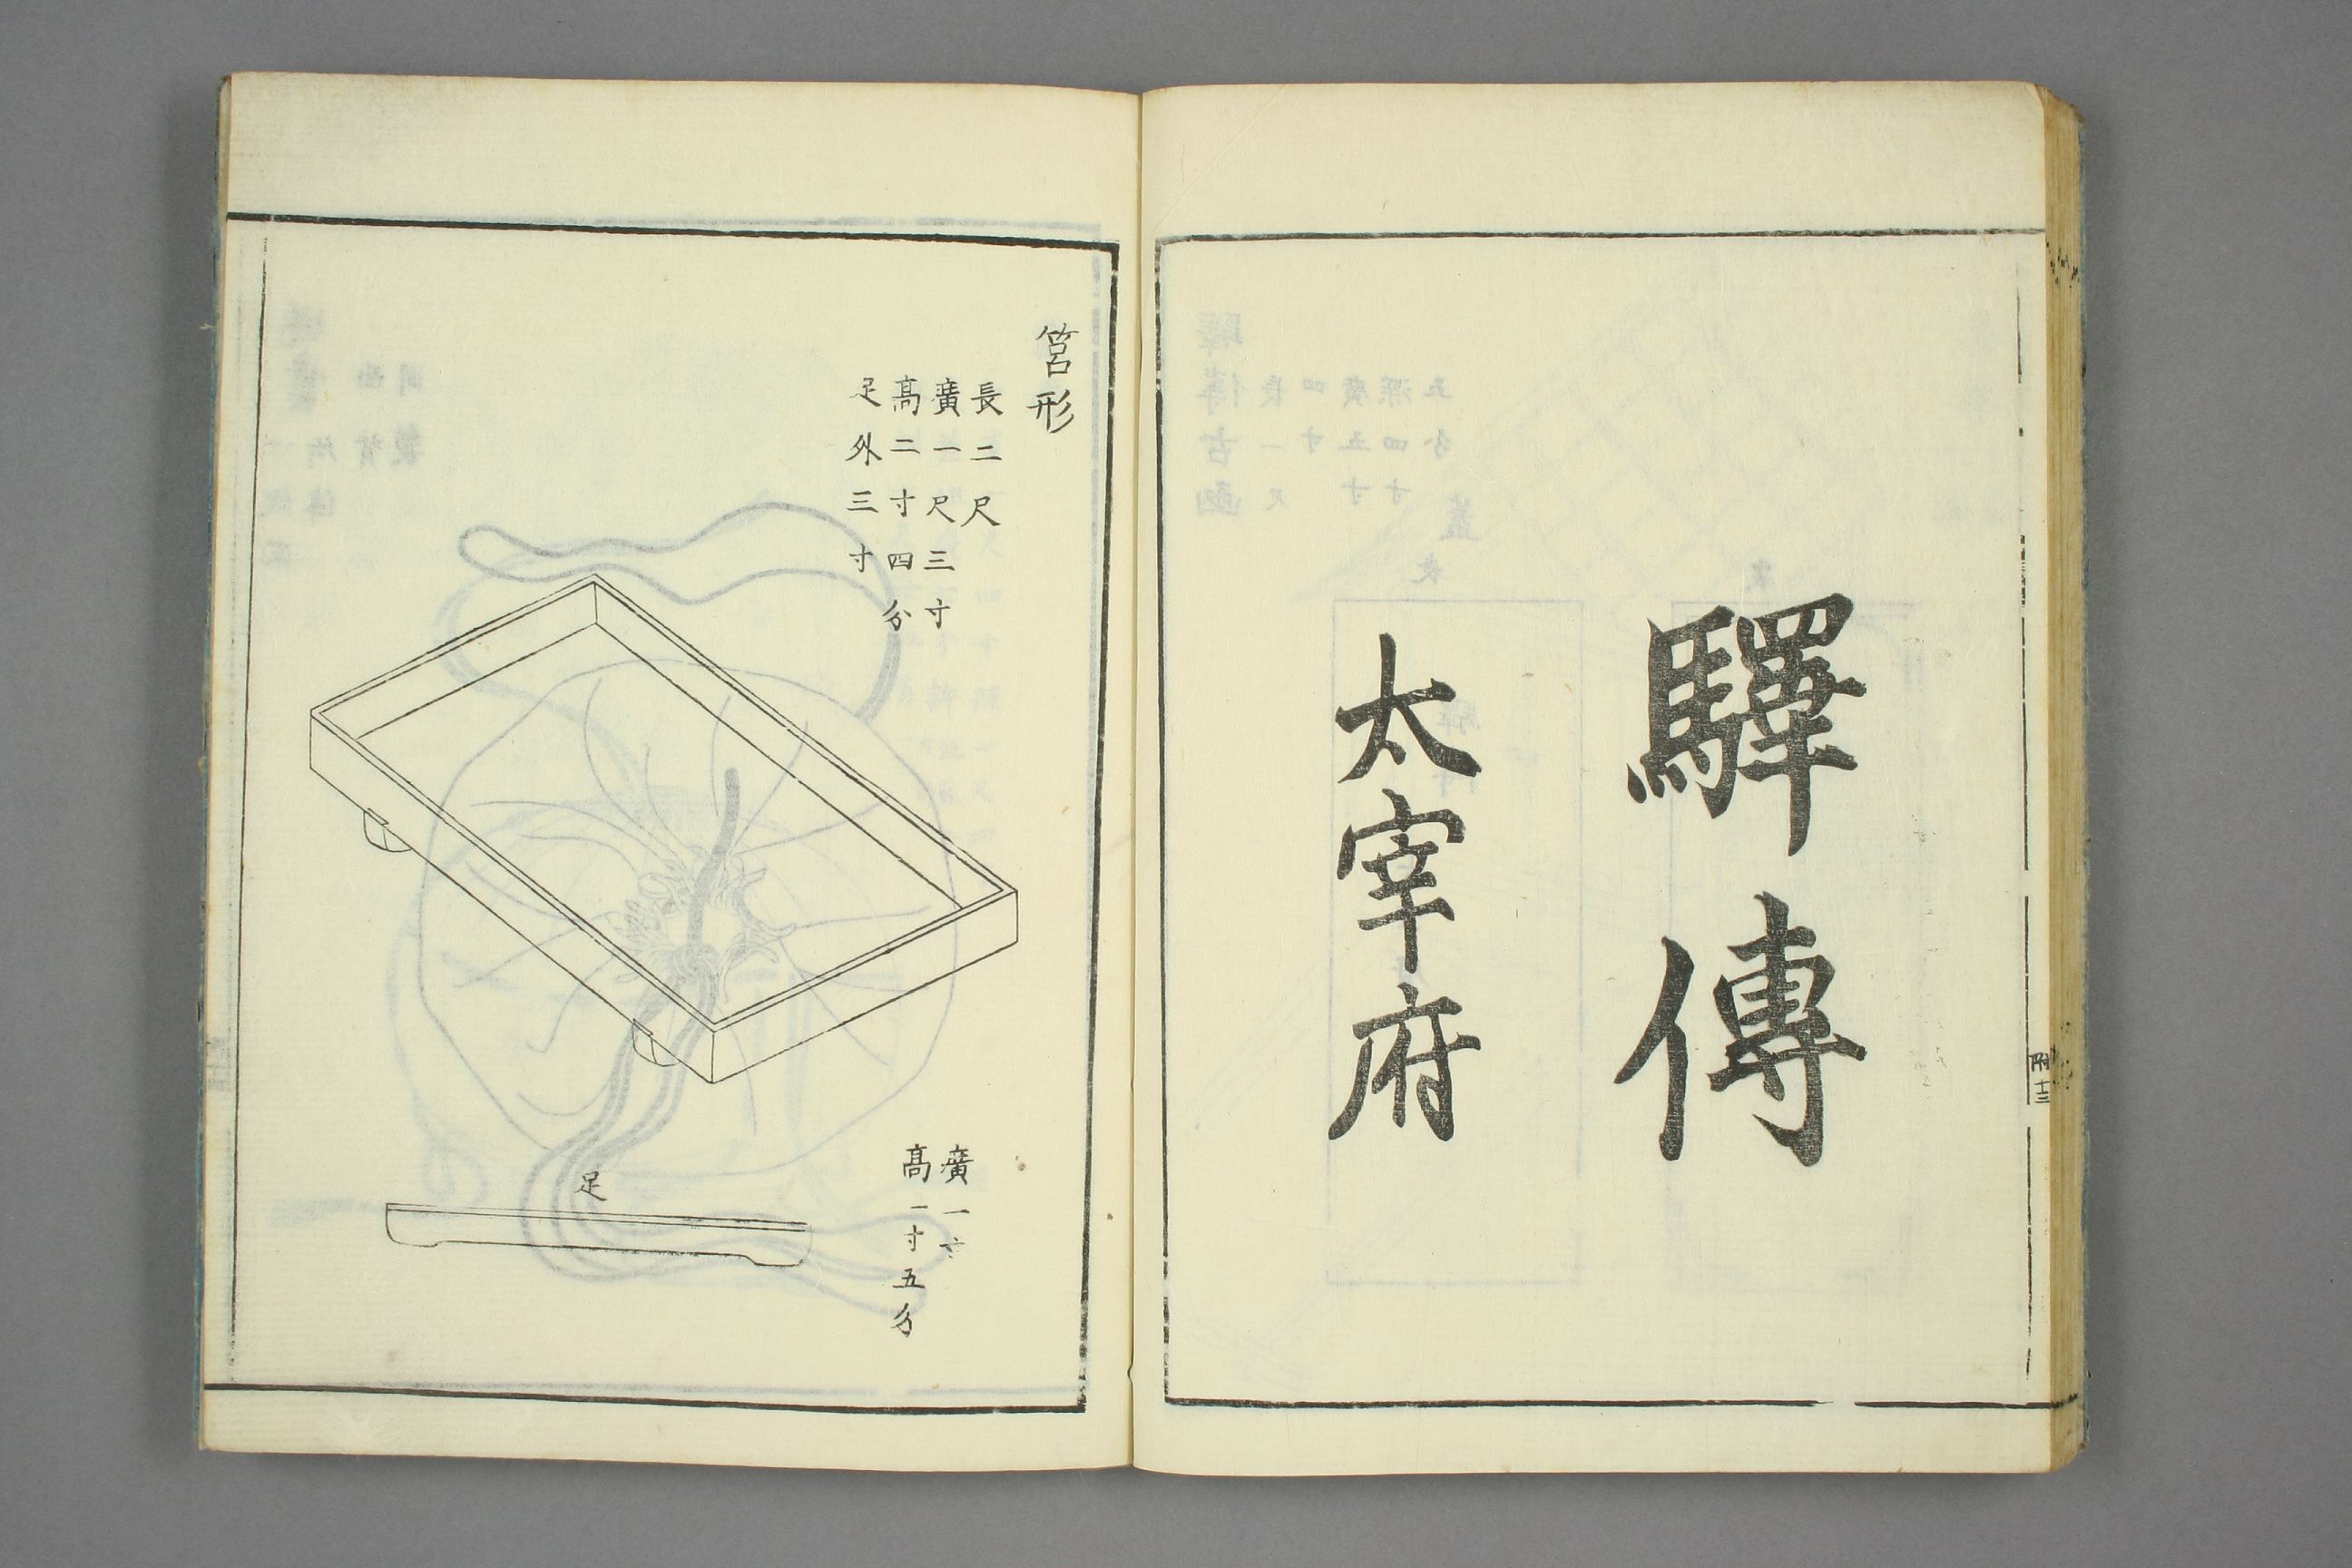 驛傳
太宰府
附十三
筥形
長二尺
廣一尺三寸
髙二寸四分
足外三寸
廣一寸
髙一寸五分
足